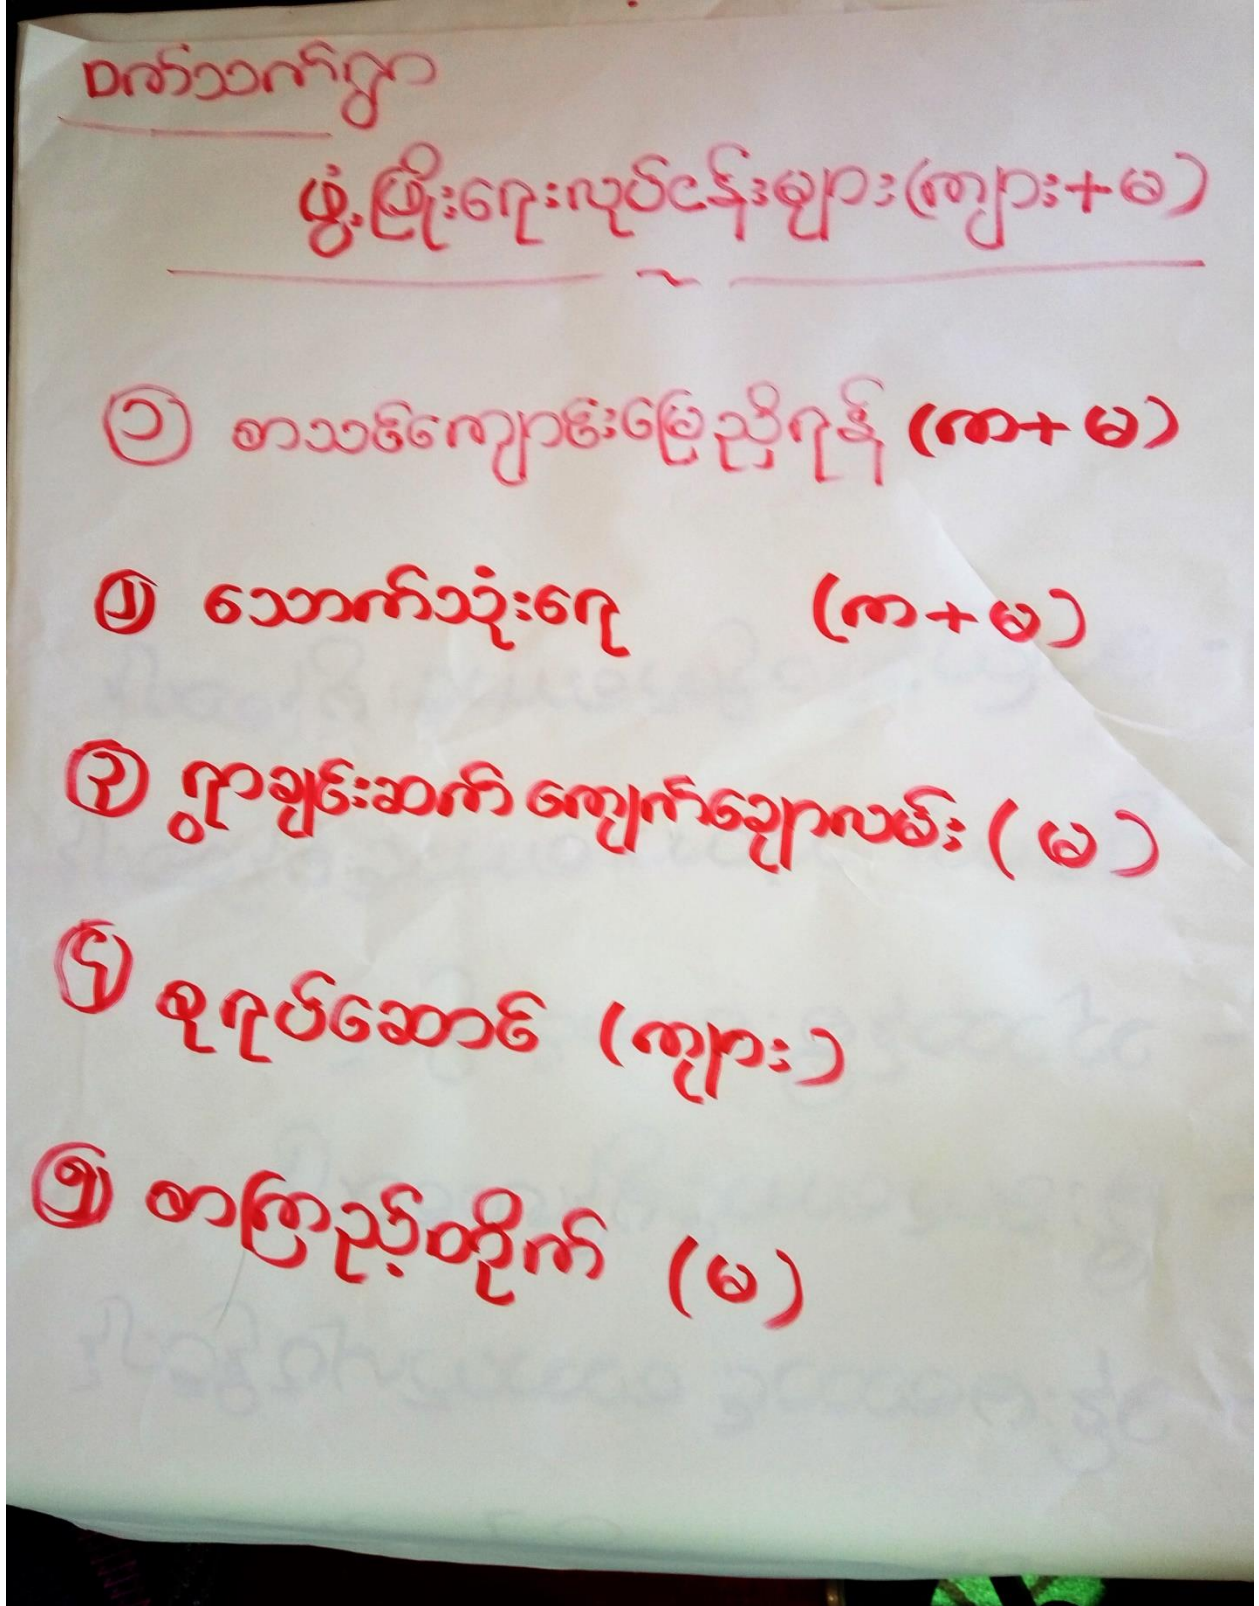 ဝက်သက်ရွာ
ဖွံ့ဖြိုးရေးလုပ်ငန်းများ(ကျား+မ)
၁ စာသင်ကျောင်းမြေညှိရန် (ကာ+မ)
၂ သောက်သုံးရေ (ကာ+မ)
၃ ရွာချင်းဆက် ကျောက်ချောလမ်း (မ)
၄ စုရပ်ဆောင် (ကျား)
၅ စာကြည့်တိုက် (မ)